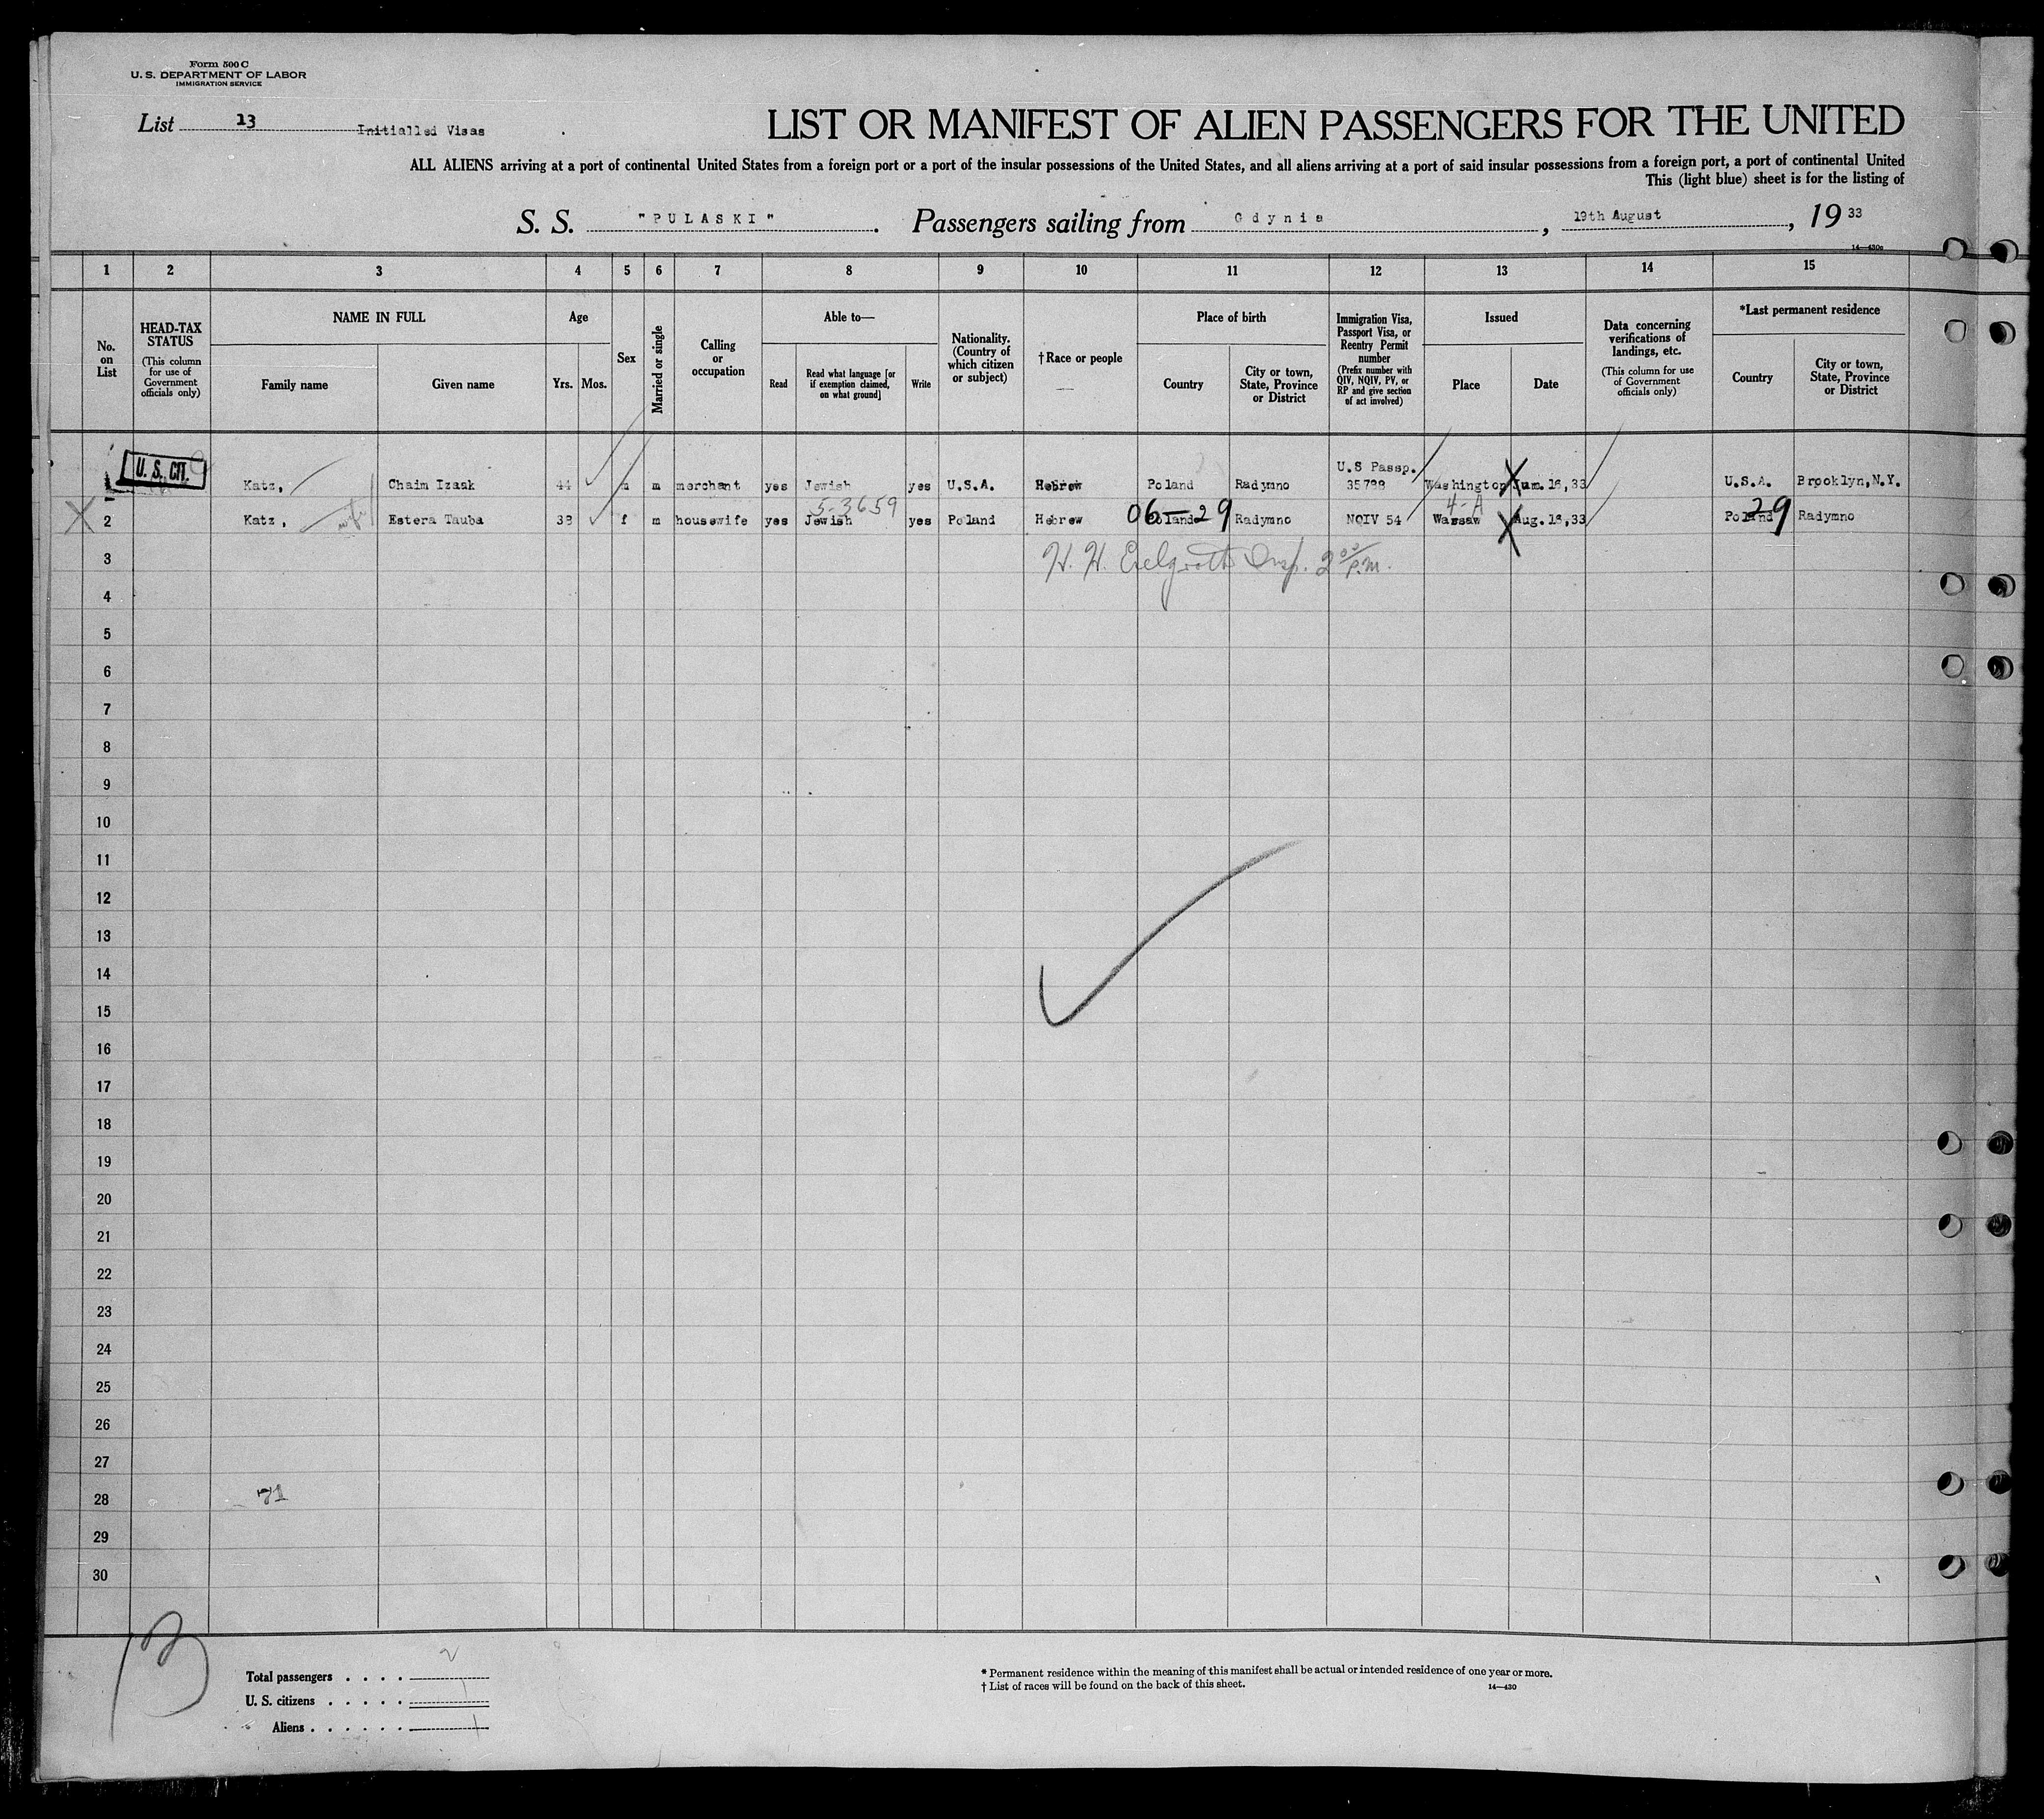 Form 500 C
U. S. DEPARTMENT OF LABOR
IMMIGRATION SERVICE
List 13 Initialled Visas
LIST OR MANIFEST OF ALIEN PASSENGERS FOR THE UNITED
ALL ALIENS arriving at a port of continental United States from a foreign port or a port of the insular possessions of the United States, and all aliens arriving at a port of said insular possessions from a foreign port, a port of continental United
This (light blue) sheet is for the listing of
S. S. "PULASKI". Passengers sailing from Gdynia, 19th August, 19 33
14—430c
1 2 3 4 5 6 7 8 9 10 11 12 13 14 15
No. on List
HEAD-TAX STATUS
(This column for use of Government officials only)
NAME IN FULL
Family name
Given name
Age
Yrs. Mos.
Sex
Married or single
Calling or occupation
Able to—
Read
Read what language [or if exemption claimed, on what ground]
Write
Nationality. (Country of which citizen or subject)
†Race or people
Place of birth
Country
City or town, State, Province or District
Immigration Visa, Passport Visa, or Reentry Permit number
(Prefix number with QIV, NQIV, PV, or RP and give section of act involved)
Issued
Place
Date
Data concerning verifications of landings, etc.
(This column for use of Government officials only)
*Last permanent residence
Country
City or town, State, Province or District
U. S. CIT.
Katz, Chaim Izaak 44 m m merchant yes Jewish yes U.S.A. Hebrew Poland Radymno U.S Passp. 35788 Washington 16,33 U.S.A. Brooklyn, N.Y.
5-3659 4-A
2 Katz, wife Estera Tauba 38 f m housewife yes Jewish yes Poland Hebrew Poland 06-29 Radymno NQIV 54 Warsaw Aug. 16,33 Poland 29 Radymno
3 H. H. Insp. 2 00 P.M.
4
5
6
7
8
9
10
11
12
13
14
15
16
17
18
19
20
21
22
23
24
25
26
27
28 71
29
30
13
Total passengers . . . . 2
U. S. citizens . . . . . 1
Aliens . . . . . . 1
* Permanent residence within the meaning of this manifest shall be actual or intended residence of one year or more.
† List of races will be found on the back of this sheet. 14—430